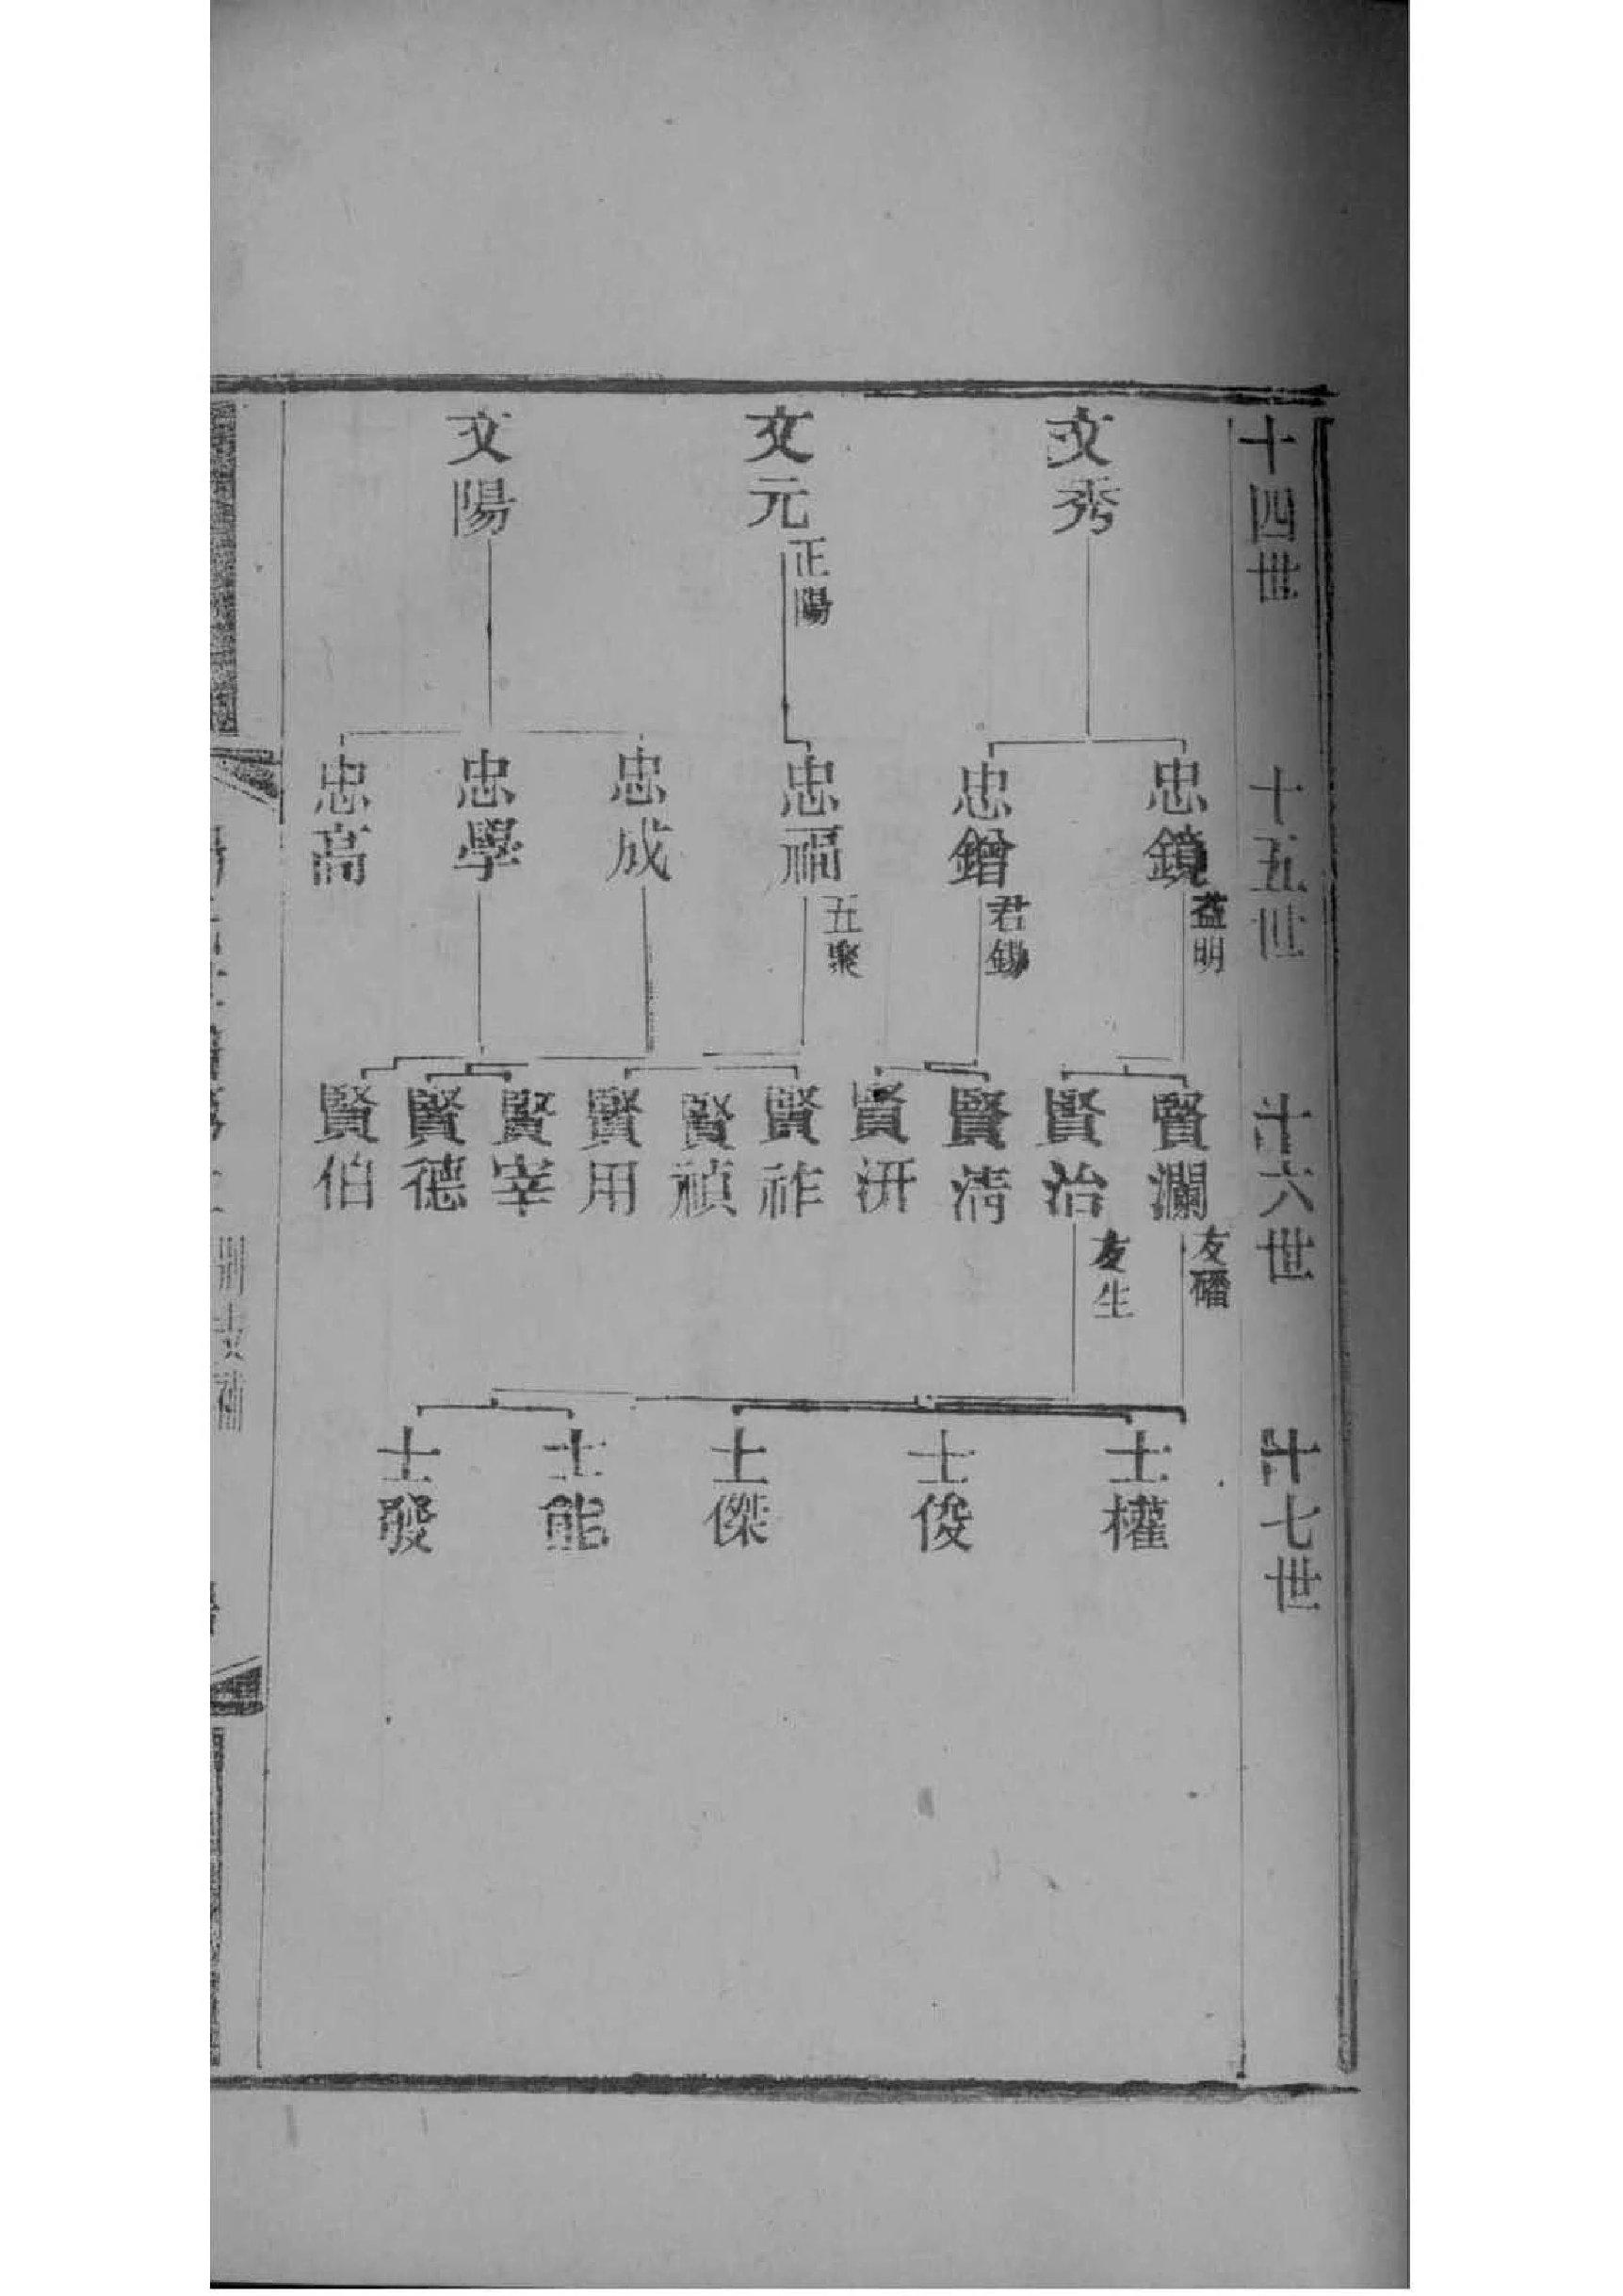 十四世
十五世
十六世
十七世
文秀
文元
正陽
文陽
忠鏡
益明
忠鏳
君錫
忠福
五聚
忠成
忠學
忠高
賢瀾
友磻
賢治
友生
賢清
賢汧
賢祚
賢禎
賢用
賢宰
賢德
賢伯
士權
士俊
士傑
士能
士發